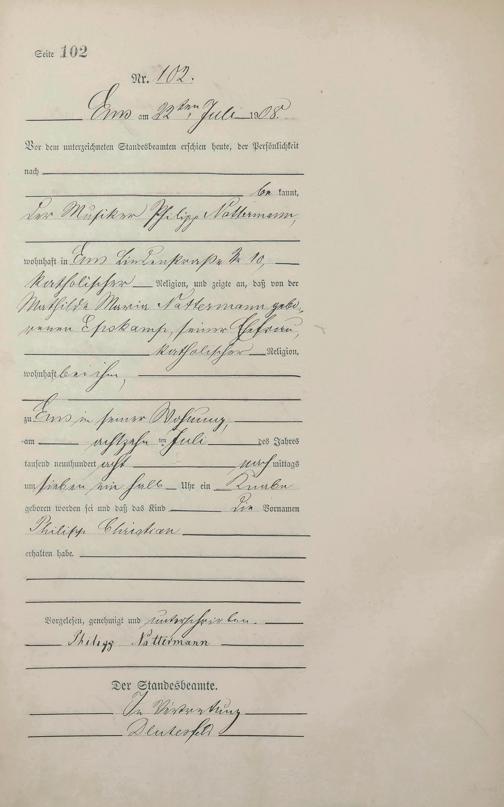 Seite 102
Nr. 102.
Ems am 22ten Juli 1908.
Vor dem unterzeichneten Standesbeamten erschien heute, der Persönlichkeit
nach
be kannt,
der Musiker Philipp Nattermann,
wohnhaft in Ems Lindenstraße No 10,
katholischer Religion, und zeigte an, daß von der
Mathilde Maria Nattermann gebo-
renen seiner Ehefrau,
katholischer Religion,
wohnhaft bei ihm,
zu Ems in seiner Wohnung,
am achtzehn ten Juli des Jahres
tausend neunhundert acht nach mittags
um sieben ein halb Uhr ein Knabe
geboren worden sei und daß das Kind die Vornamen
Philipp Christian
erhalten habe.
Vorgelesen, genehmigt und unterschrieben.
Philipp Nattermann
Der Standesbeamte.
In Vertretung